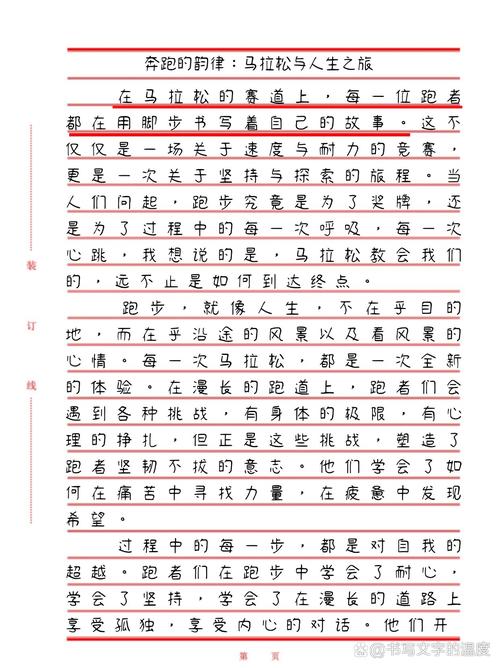 奔跑的韵律：马拉松与人生之旅
在马拉松的赛道上，每一位跑者
都在用脚步书写着自己的故事。这不
仅仅是一场关于速度与耐力的竞赛，
更是一次关于坚持与探索的旅程。当
人们问起，跑步究竟是为了奖牌，还
是为了过程中的每一次呼吸，每一次
心跳，我想说的是，马拉松教会我们
的，远不止是如何到达终点。
跑步，就像人生，不在乎目的
地，而在乎沿途的风景以及看风景的
心情。每一次马拉松，都是一次全新
的体验。在漫长的跑道上，跑者们会
遇到各种挑战，有身体的极限，有心
理的挣扎，但正是这些挑战，塑造了
跑者坚韧不拔的意志。他们学会了如
何在痛苦中寻找力量，在疲惫中发现
希望。
过程中的每一步，都是对自我的
超越。跑者们在跑步中学会了耐心，
学会了坚持，学会了在漫长的道路上
享受孤独，享受内心的对话。他们开
装
订
线
第 页
@书写文字的温度